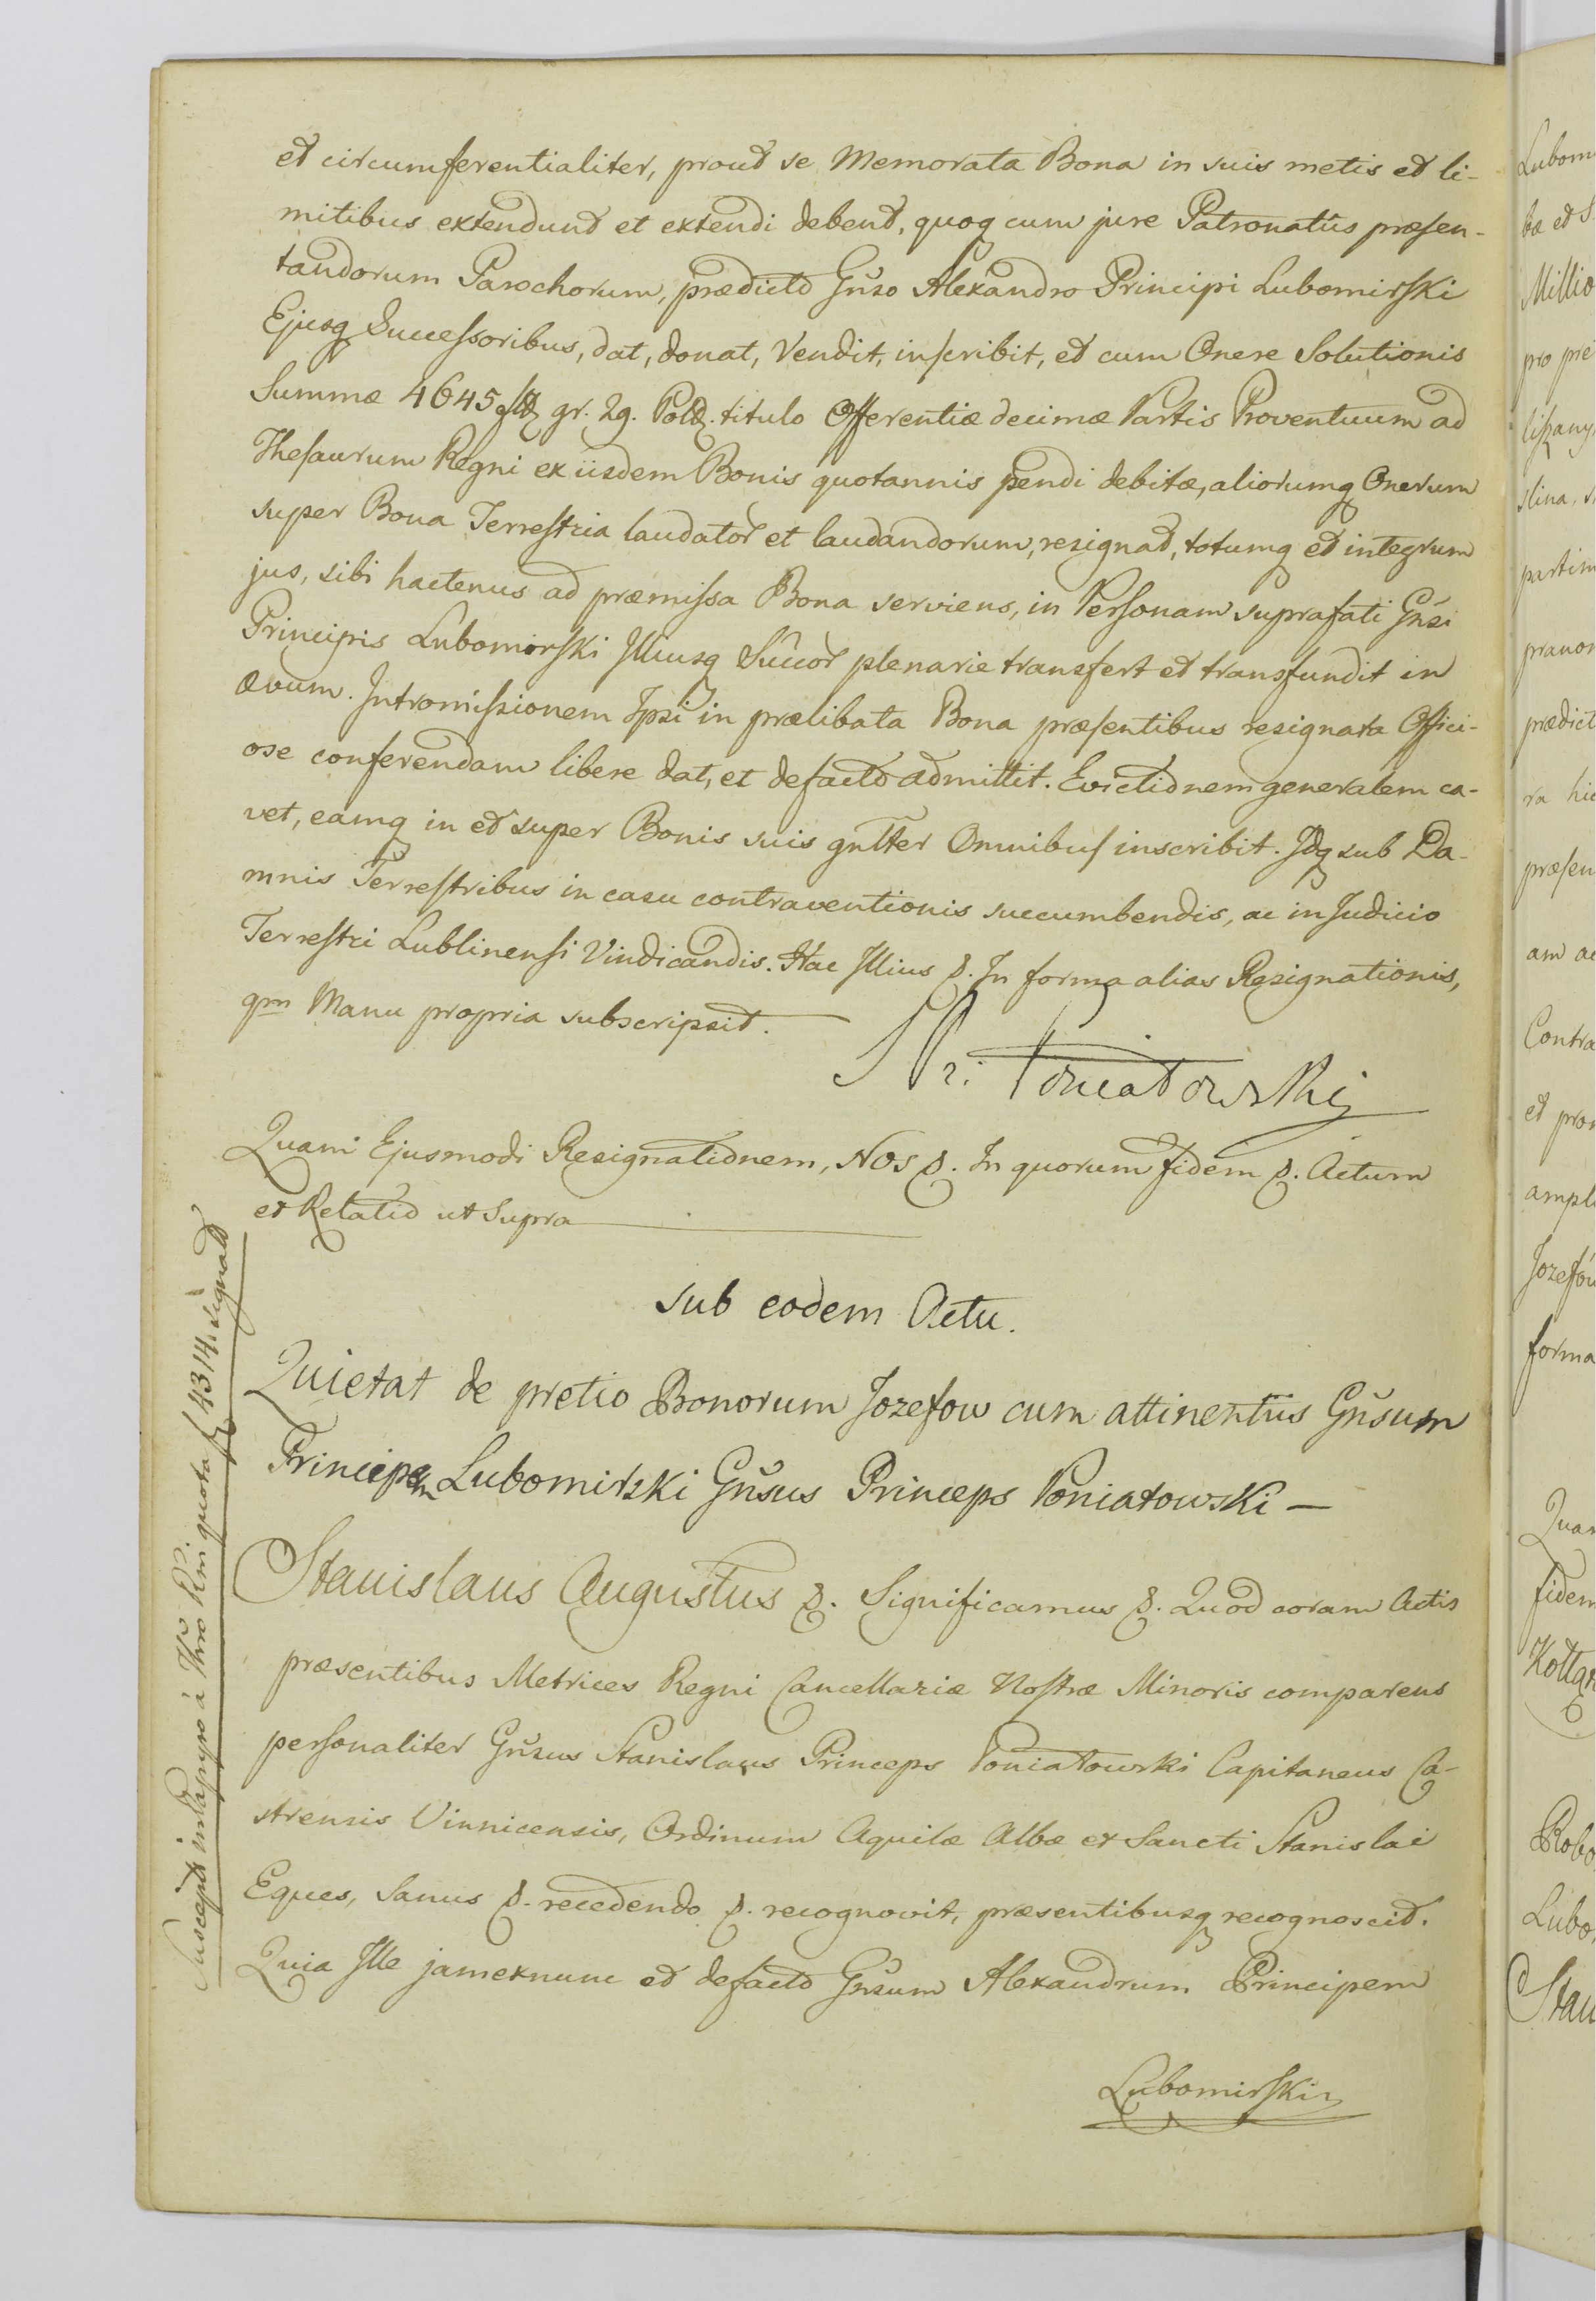 et circumferentialiter, prout se Memorata Bona in suis metis et li-
mitibus extendunt et extendi debent, quoq cum jure Patronatûs præsen-
tandorum Parochorum, prædicto Gnso Alexandro Principi Lubomirski
Ejusq Successoribus, dat, donat, Vendit, inscribit, et cum Onere Solutionis
Summæ 4645 gr. 29. Pol. titulo Offerentiæ decimæ Partis Proventuum ad
Thesaurum Regni ex iisdem Bonis quotannis pendi debitæ, aliorumq Onerum
super Bona Terrestria laudator et laudandorum, resignat, totumq et integrum
jus, sibi hactenus ad præmissa Bona serviens, in Personam suprafati Gnsi
Principis Lubomirski Illiusq Succor plenarie transfert et transfundit in
ævum. Intromissionem Ipsi in prælibata Bona præsentibus resignata Offici-
ose conferendam libere dat, et defacto admittit. Evictionem generalem ca-
vet, eamq in et super Bonis suis gnlter Omnibus inscribit. Idq sub Da-
mnis Terrestribus in casu contraventionis succumbendis, ac in Judicio
Terrestri Lublinensi Vindicandis. Hac Illius &. In forma alias Resignationis,
qm Manu propria subscripsit.
S Pr: Poniatowski
Quam Ejusmodi Resignationem, Nos &. In quorum fidem &. Actum
et Relatio ut Supra
Sub eodem Actu.
Quietat de pretio Bonorum Jozefow cum attinentiis Gnsum
Principem Lubomirski Gnsus Princeps Poniatowski –
Stanislaus Augustus &. Significamus &. Quod coram Actis
præsentibus Metrices Regni Cancellariæ Nostræ Minoris comparens
personaliter Gnsus Stanislaus Princeps Poniatowski Capitaneus Ca-
strensis Vinnicensis, Ordinum Aquilæ Albæ et Sancti Stanislai
Eques, Sanus &. recedendo &. recognovit, præsentibusq recognoscit.
Quia Ille jamexnunc et defacto Gnsum Alexandrum Principem
Lubomirski
Suscepta in Papyro à Thro quota 4314. signato